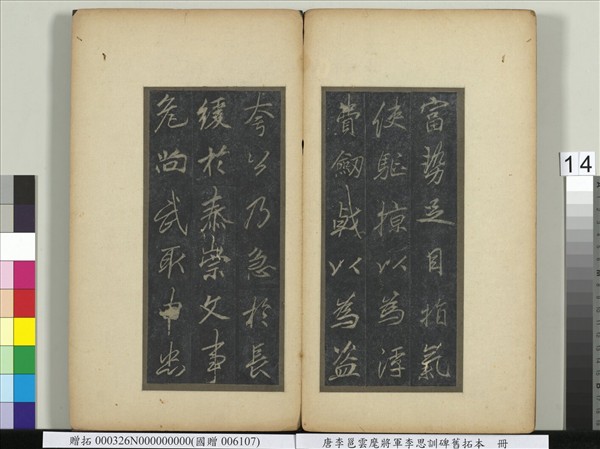 富勢足目指氣
使駈掠以為浮
費劒戟以為盜
夸公乃急於長
緩於泰崇文事
危尚武取中忠
14
贈拓 000326N000000000(國贈 006107)
唐李邕雲麾將軍李思訓碑舊拓本 冊